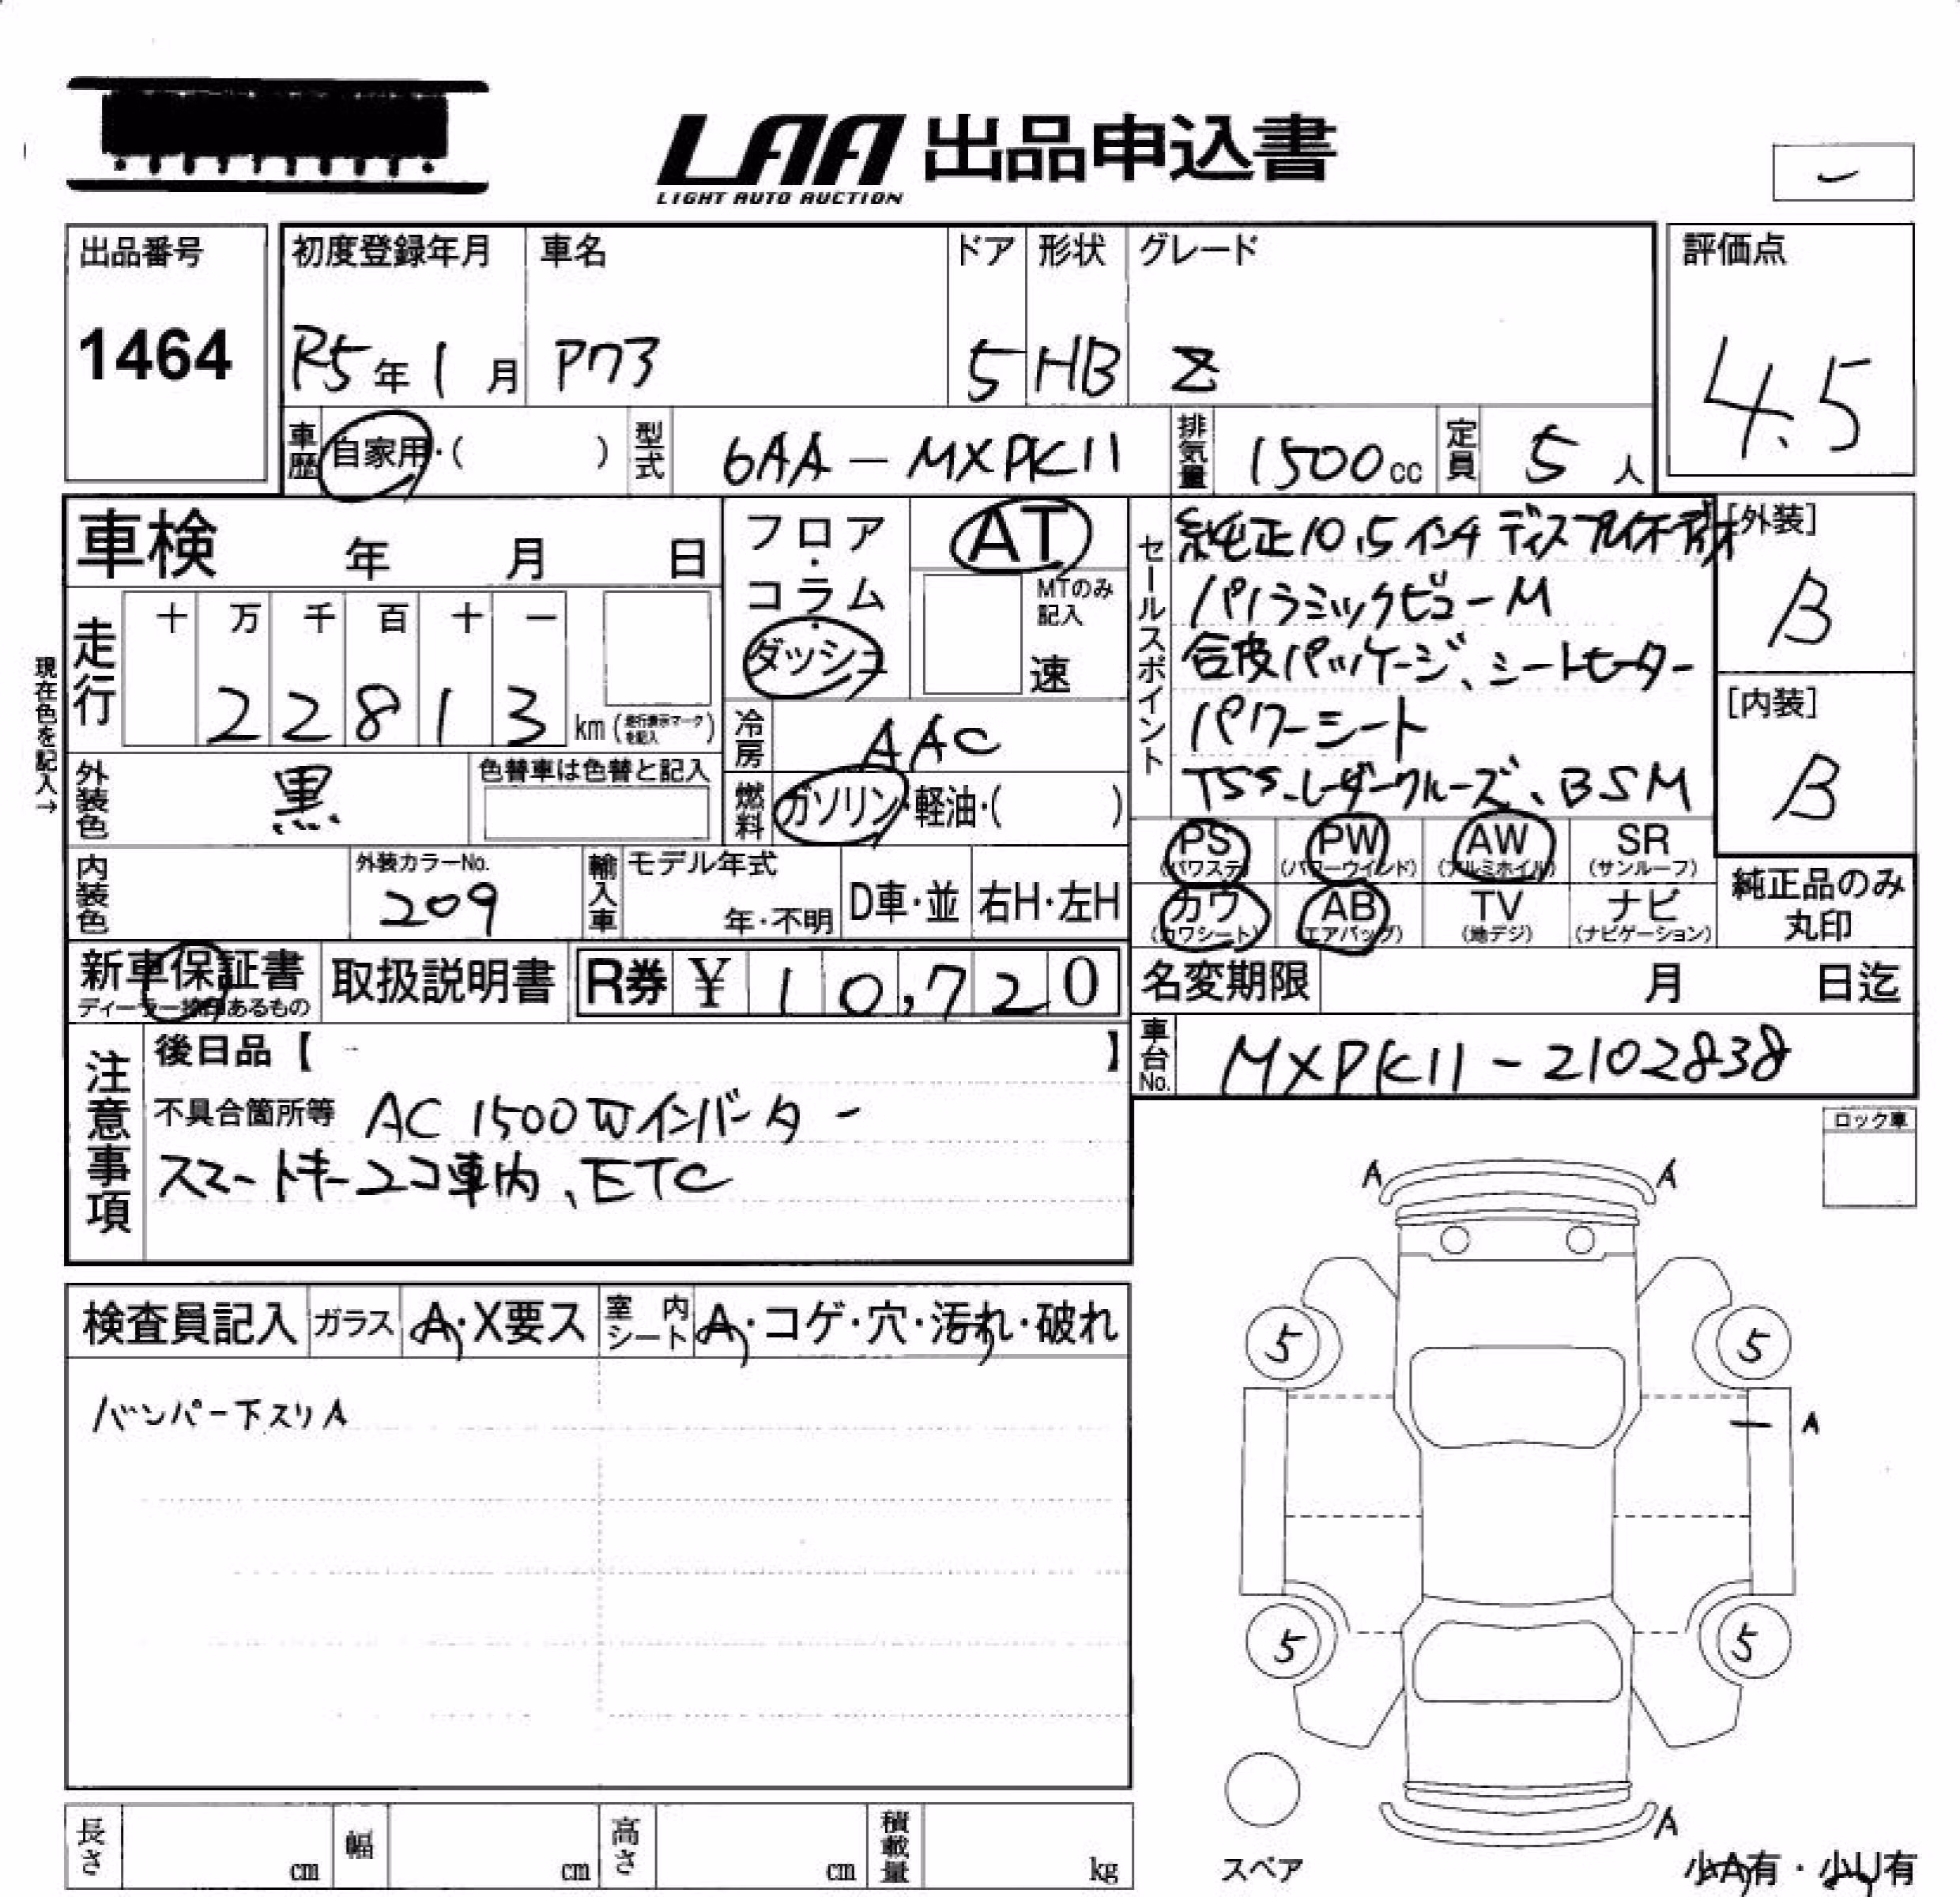 LAA 出品申込書
LIGHT AUTO AUCTION
出品番号 1464
初度登録年月 R5年1月
車名 アクア
ドア 5
形状 HB
グレード Z
評価点 4.5
車歴 自家用・( )
型式 6AA-MXPK11
排気量 1500cc
定員 5人
車検 年 月 日
フロア・コラム・ダッシュ
AT
MTのみ記入
速
現在色を記入→
走行 十 万 千 百 十 一
22813 km(走行表示マークを記入)
冷房 AAC
燃料 ガソリン・軽油・( )
外装色 黒
色替車は色替と記入
内装色
外装カラーNo. 209
輸入車 モデル年式 年・不明
D車・並
右H・左H
セールスポイント
純正10.5インチディスプレイオーディオ
パノラミックビューM
合皮パッケージ、シートヒーター
パワーシート
TSS-レーダークルーズ、BSM
[外装] B
[内装] B
PS (パワステ)
PW (パワーウインド)
AW (アルミホイル)
SR (サンルーフ)
カワ (カワシート)
AB (エアバッグ)
TV (地デジ)
ナビ (ナビゲーション)
純正品のみ丸印
新車保証書
ディーラー捺印あるもの
取扱説明書
R券 ¥ 10,720
名変期限 月 日迄
車台No. MXPK11-2102838
注意事項
後日品【 - 】
不具合箇所等 AC1500Wインバーター
スマートキー2コ車内、ETC
ロック車
検査員記入
ガラス A・X要ス
室内シート A・コゲ・穴・汚れ・破れ
バンパー下スリA
A A
5 5
A
5 5
A
スペア
少A有・少U有
長さ cm
幅 cm
高さ cm
積載量 kg